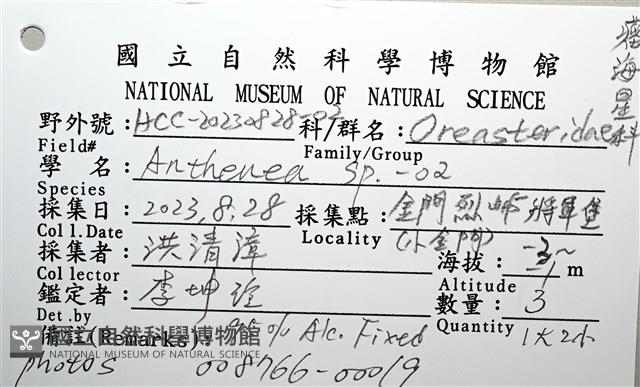 國立自然科學博物館
NATIONAL MUSEUM OF NATURAL SCIENCE
瘤海星科
野外號:HCC-20230828-02 科/群名:Oreasteridae
Field# Family/Group
學名:Anthenea sp.-02
Species
採集日:2023.8.28 採集點:金門烈嶼將軍堡
Coll.Date Locality (小金門)
採集者:洪清漳 海拔: m
Collector Altitude
鑑定者:李坤瑄 數量:3
Det.by Quantity 1大2小
備註(Remarks): 95% Alc. Fixed
國立自然科學博物館
NATIONAL MUSEUM OF NATURAL SCIENCE
photos 008766-00019